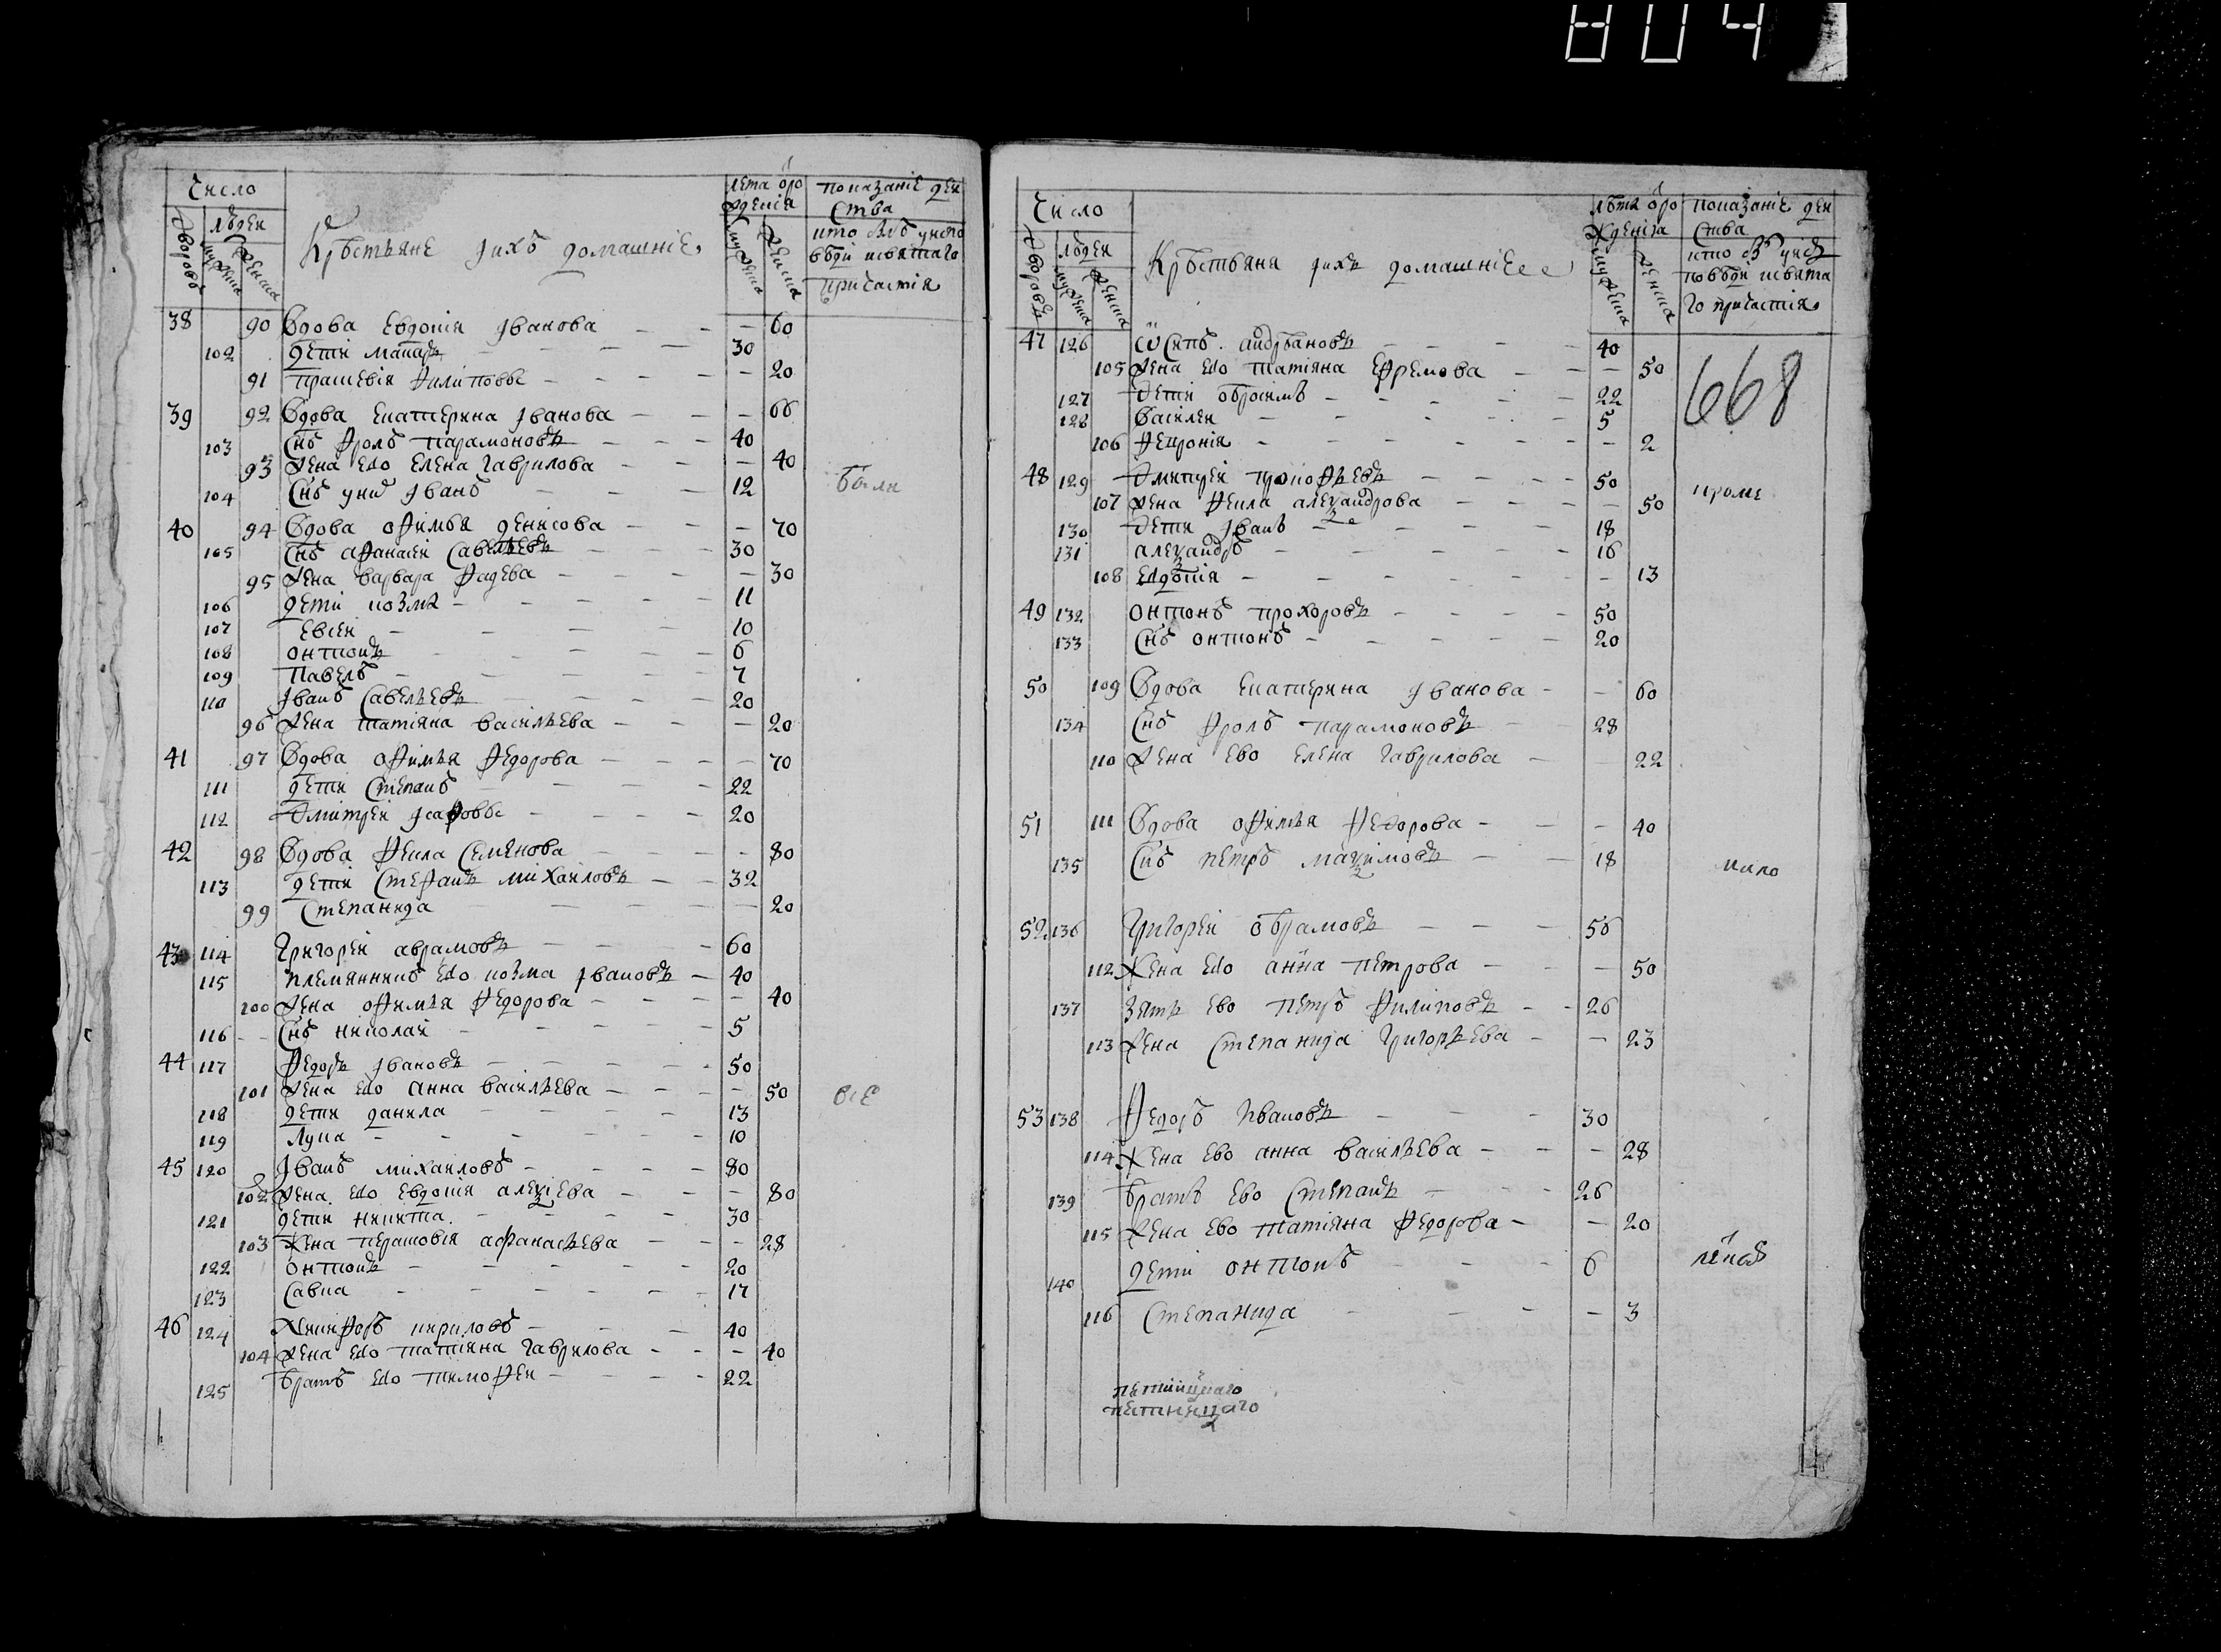 804
Число
Дворовъ
людеи
мужеска
женска
Крестьяне ихъ домашніе
лета о ро
жденія
мужеска
женска
показаніе деи
ства
кто былъ у испо
веди исвятаго
причастія
38 90 Вдова Евдокія Иванова - - - 60
102 дети макаръ - - - 30
91 прасковія Филиповы - - - 20
39 92 Вдова Екатерина Иванова - - - 66
103 Снъ Фролъ парамоновъ - - - 40
93 жена ево Елена гаврилова - - - 40
104 Снъ у них Иванъ - - - 12
были
40 94 Вдова офимья денисова - - - 70
105 Снъ афанасеи Савельевъ - - - 30
95 жена варвара Фадева - - - 30
106 дети козма - - - 11
107 Евсеи - - - 10
108 онтонъ - - - 6
109 Павелъ - - - 7
110 Иванъ Савельевъ - - - 20
96 жена татіяна васильева - - - 20
41 97 Вдова офимья Федорова - - - 70
111 дети Степанъ - - - 22
112 Дмитреи - - - 20
42 98 Вдова Фекла Семенова - - - 80
113 дети Стефанъ михаиловъ - - - 32
99 Степанида - - - 20
43 114 Григореи аврамовъ - - - 60
115 племянникъ ево козма Ивановъ - 40
100 жена офимья Федорова - - - 40
116 Снъ николаи - - - 5
44 117 Федоръ Ивановъ - - - 50
101 жена ево анна васильева - - - 50
все
118 дети данила - - - 13
119 Лука - - - 10
45 120 Иванъ михаиловъ - - - 80
102 жена ево Евдокія алексиева - - - 80
121 дети никита - - - 30
103 жена перасковія афанасьева - - - 28
122 онтонъ - - - 20
123 Савка - - - 17
46 124 Никифоръ кириловъ - - - 40
104 жена ево татіяна гаврилова - - - 40
125 братъ ево тимофеи - - - 22
Число
Дворовъ
людеи
мужеска
женска
Крестьяня ихъ домашніе
лета о ро
жденіа
мужеска
женска
показаніе деи
ства
кто былъ у ис
поведи исвята
го причастія
47 126 Осипъ андреановъ - - - 40
105 жена ево татіяна Ефремова - - - 50
668
127 дети - - - 22
128 Василеи - - - 5
106 Февронія - - - 2
48 129 Дмитреи прокофьевъ - - - 50
кроме
107 жена Фекла александрова - - - 50
130 дети Иванъ - - - 18
131 александръ - - - 16
108 Евдокія - - - 13
49 132 онтонъ прохоровъ - - - 50
133 Снъ онтонъ - - - 20
50 109 Вдова Екатерина Иванова - - 60
134 Снъ Фролъ парамоновъ - - 28
110 жена ево Елена гаврилова - 22
51 111 Вдова офимья Федорова - - - 40
135 Снъ петръ максимовъ - - 18
како
52 136 Григореи обрамовъ - - - 56
112 жена ево анна петрова - - - 50
137 зять ево петръ Филиповъ - - 26
113 жена Степанида Григорьева - - 23
53 138 Федоръ Ивановъ - - 30
114 жена ево анна васильева - - - 28
139 братъ ево Степанъ - - - 26
115 жена ево татіяна Федорова - - 20
140 дети онтонъ - - - 6
116 Степанида - - - 3